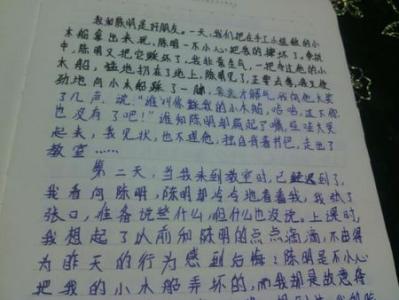 我和陈明是好朋友。一天,我们把在手工小组做的小
木船拿出来玩,陈明一不小心把我的摔坏了。争抢
中,陈明又把它踩坏了,我非常生气,一把夺过他的小
木船,猛地扔在了地上,陈明见了,正要去捡,我又使
劲地向小木船踩了一脚,我向他大笑
了几声,说:"谁叫你踩我的小木船,哈哈,这下你
也没有了吧!"谁知陈明却蹶起了嘴,哇哇大哭
起来,我见状,也不道他,独自背着书包,走出了
教室……
第二天,当我来到教室时,已经迟到了,
我看向陈明,陈明却冷冷地看着我,我张了
张口,准备说些什么,但什么也没说。上课时,
我想起了以前和陈明的点点滴滴,不由得
为昨天的行为感到后悔:陈明是不小心
把我的小木船弄坏的,而我却是故意将